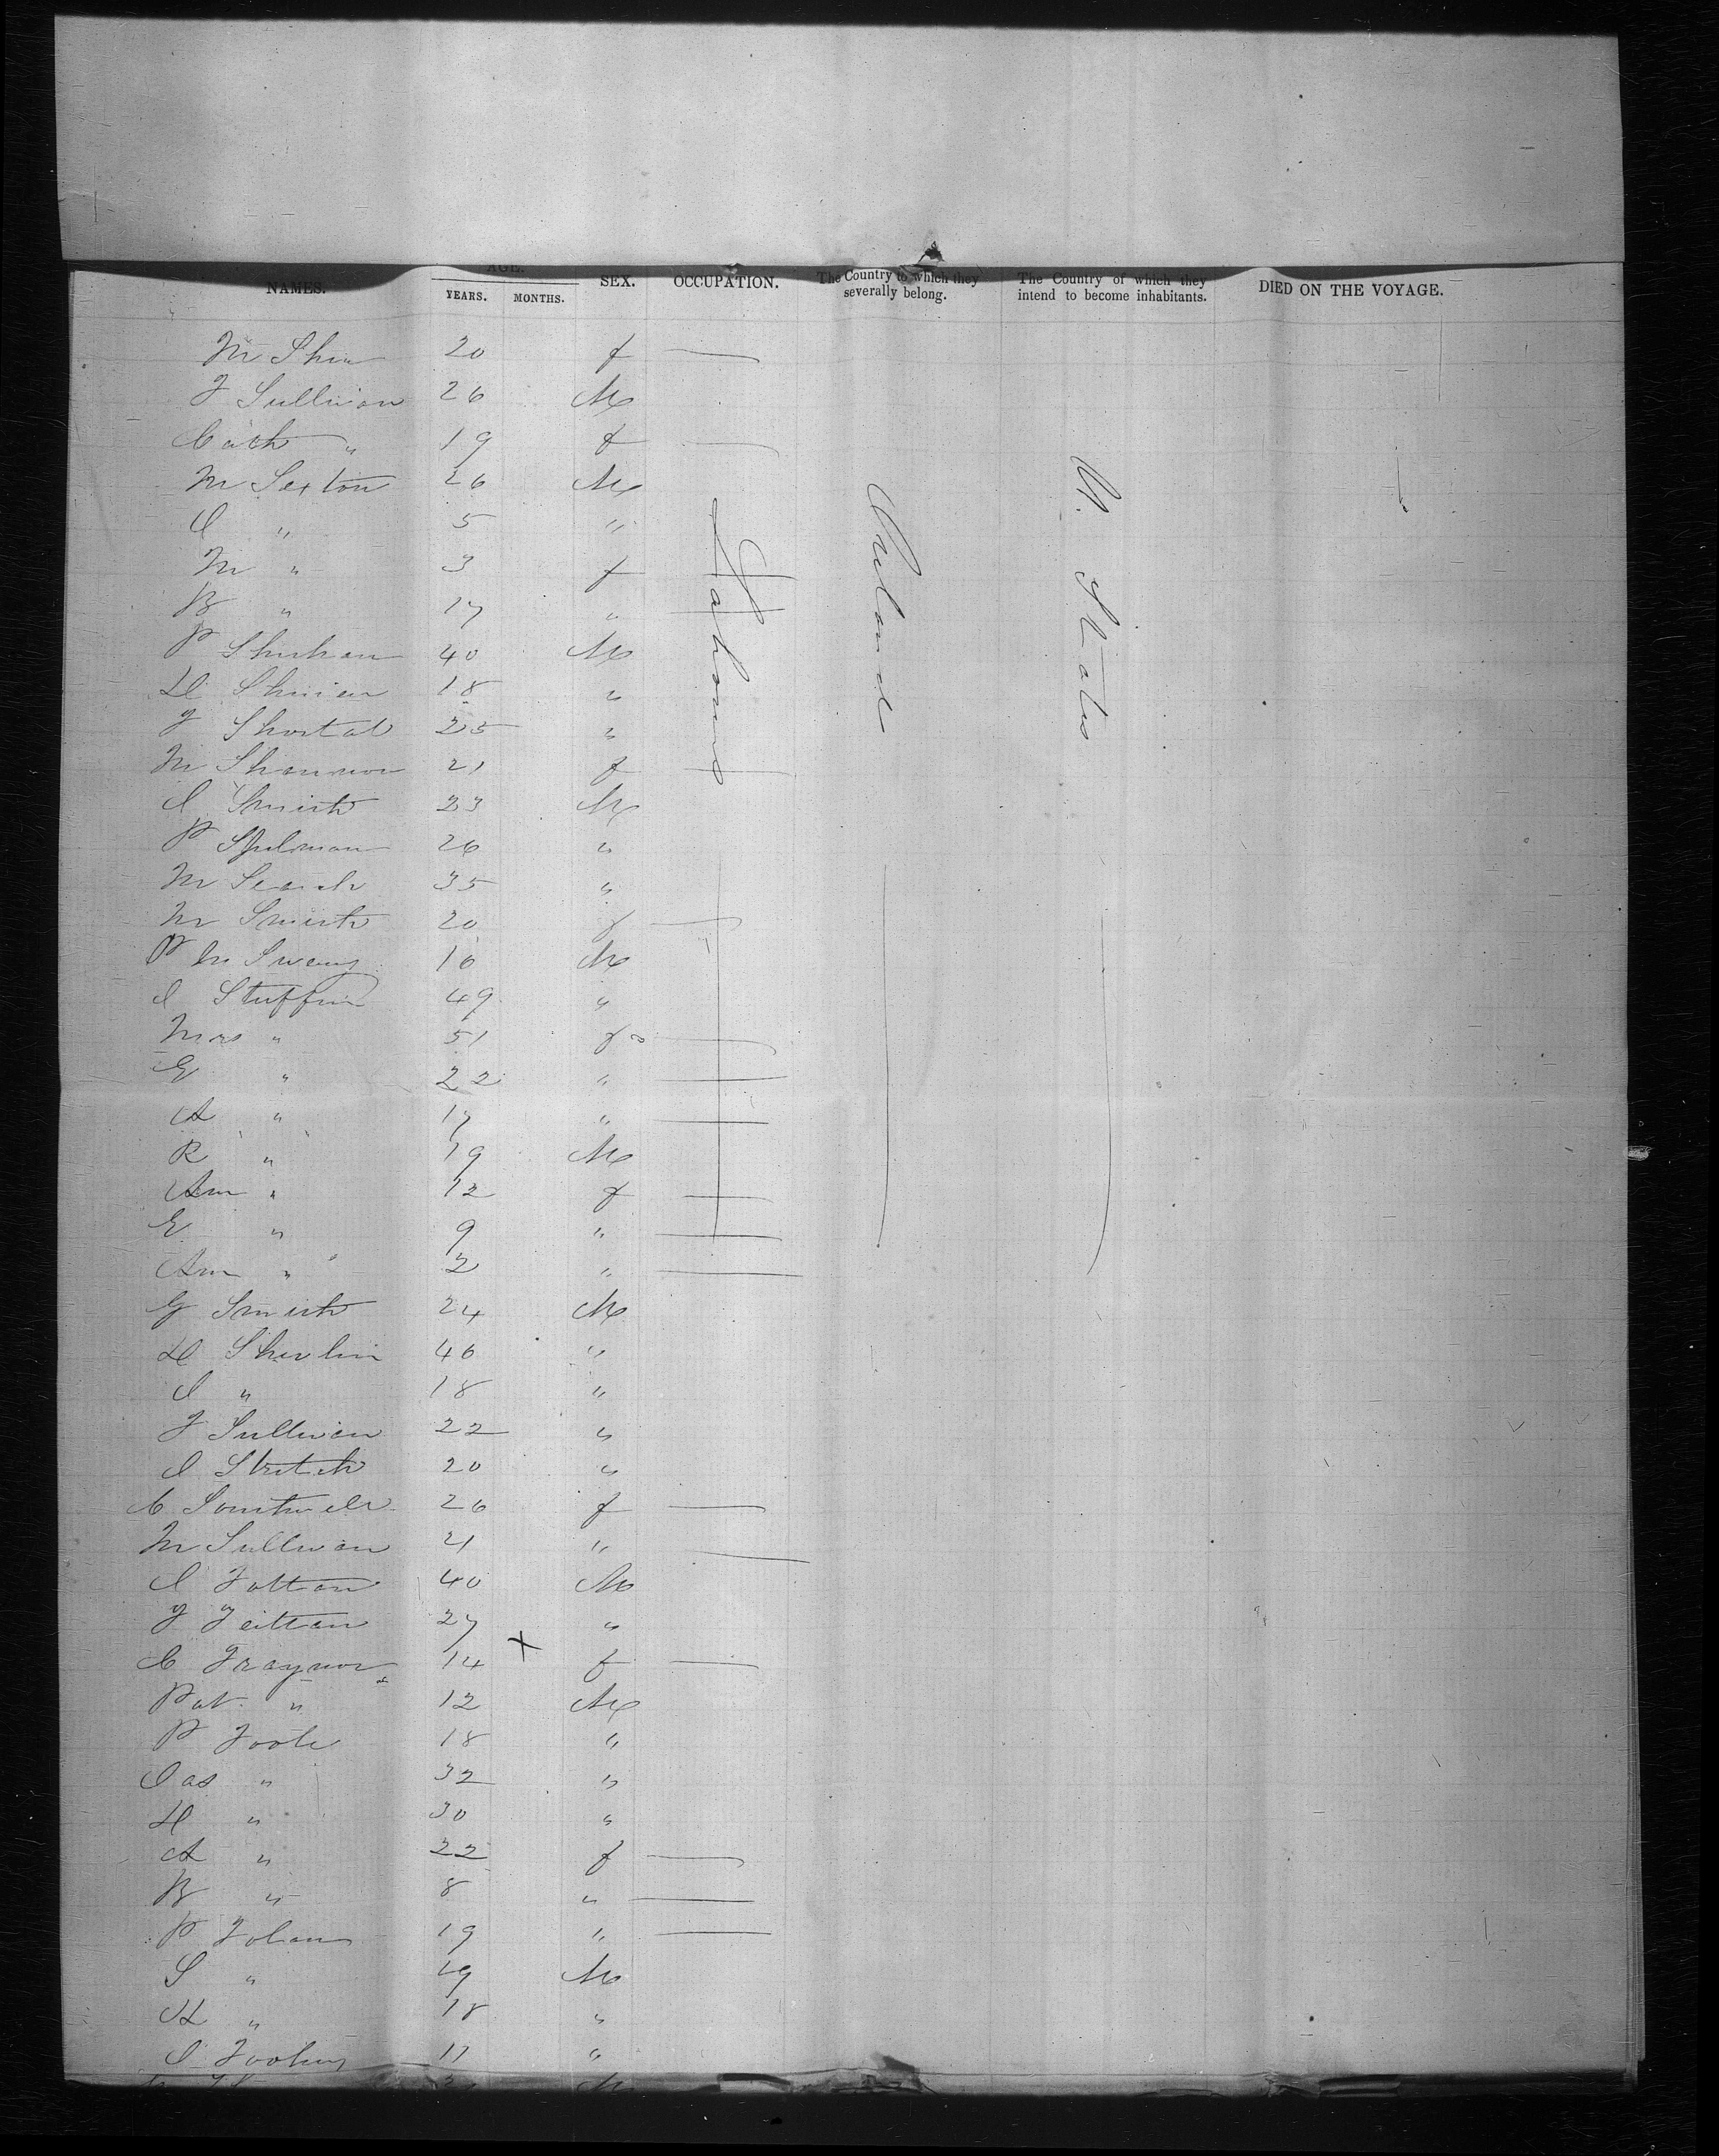 NAMES. AGE. YEARS. MONTHS. SEX. OCCUPATION. The Country to which they severally belong. The Country of which they intend to become inhabitants. DIED ON THE VOYAGE.
M Shea 20 f
J Sullivan 26 M
Cath " 19 f
M Sexton 26 M
J " 5 "
M " 3 f
B " 17 "
P 40 M
18 "
J Shortal 25 "
M Shannon 21 f
J Smith 23 M
P Spelman 26 "
M 35 "
M Smith 20 f
P M Sweny 16 M
J 49 "
Mrs " 51 f
E " 22 "
A " 17 "
R " 19 M
Ann " 12 f
E " 9 "
Ann " 2 "
G Smith 24 M
H Shevlin 46 "
J " 18 "
J Sullivan 22 "
J Stretch 20 "
C 26 f
M Sullivan 21 "
J 40 M
27 "
C Traynor 14 f
Pat " 12 M
P Toole 18 "
Jas " 32 "
H " 30 "
A " 22 f
B " 8 "
P Tolan 19 "
S " 19 M
H " 18 "
J 17 "
Labourers
Ireland
U. States